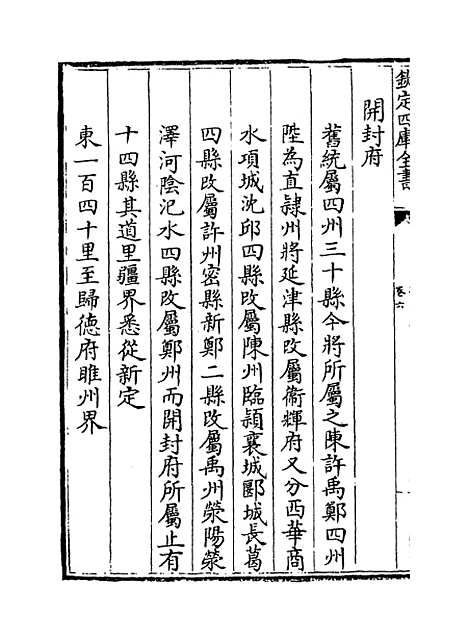 欽定四庫全書
卷六
開封府
舊統屬四州三十縣今將所屬之陳許禹鄭四州
陞為直隷州將延津縣改屬衛輝府又分西華商
水項城沈邱四縣改屬陳州臨潁襄城郾城長葛
四縣改屬許州密縣新鄭二縣改屬禹州滎陽滎
澤河陰汜水四縣改屬鄭州而開封府所屬止有
十四縣其道里疆界悉從新定
東一百四十里至歸德府睢州界